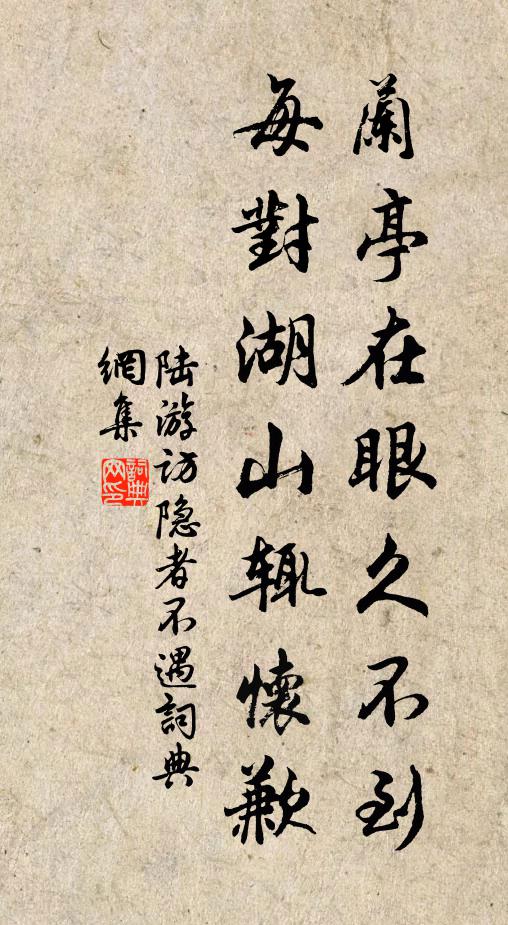 蘭亭在眼久不到
每對湖山輒懷歉
陆游访隐者不遇詞典
網集
詞典
网印